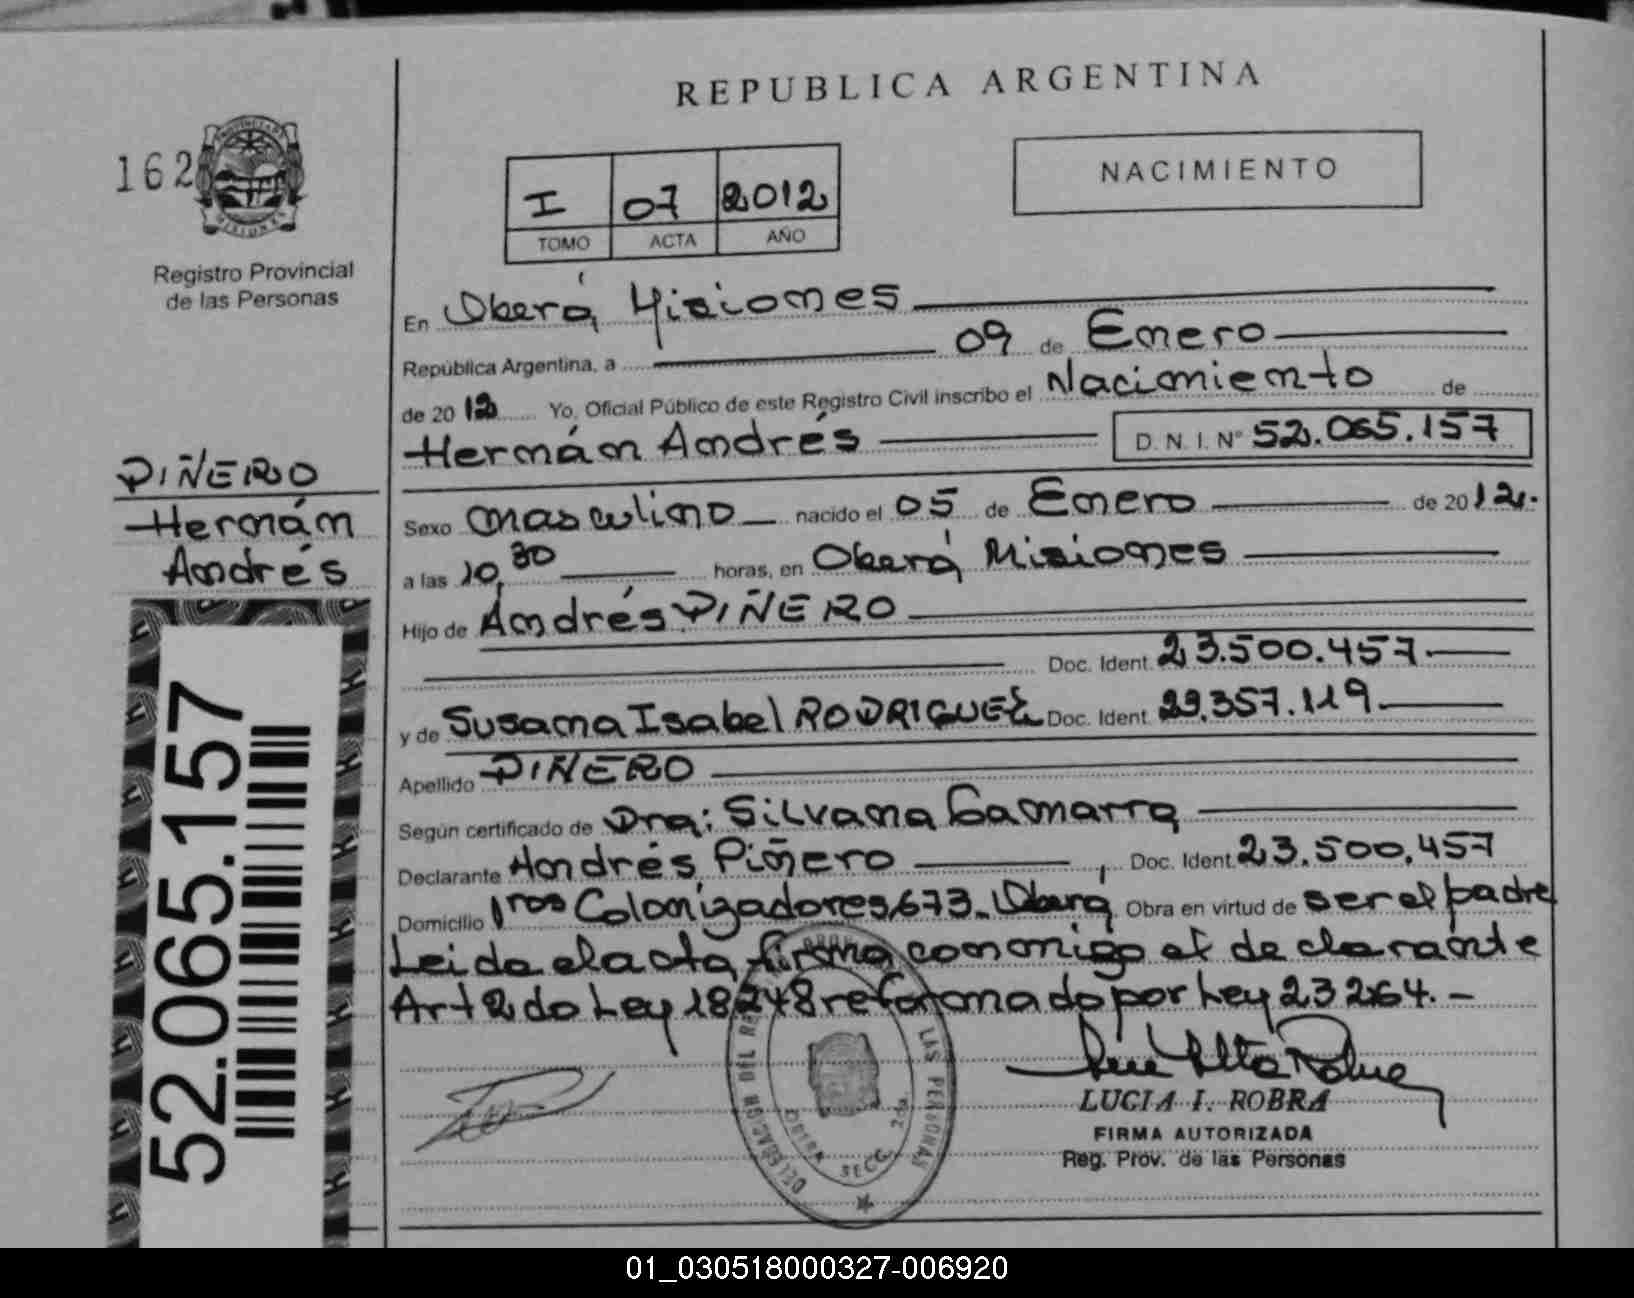 REPUBLICA ARGENTINA
162
NACIMIENTO
I 07 2012
TOMO ACTA AÑO
Registro Provincial
de las Personas
En Oberá, Misiones
República Argentina, a 09 de Enero
de 2012 Yo, Oficial Público de este Registro Civil inscribo el Nacimiento de
Hernán Andrés D. N. I. N° 52.065.157
PIÑERO
Hernán
Andrés
Sexo masculino nacido el 05 de Enero de 2012.
a las 10,30 horas, en Oberá, Misiones
Hijo de Andrés PIÑERO
Doc. Ident. 23.500.457.
y de Susana Isabel RODRIGUEZ Doc. Ident. 29.357.119.
Apellido PIÑERO
Según certificado de Dra: Silvana Gamarra
Declarante Andrés Piñero, Doc. Ident. 23.500.457
Domicilio 1ros Colonizadores 673- Oberá Obra en virtud de ser el padre
Leida el acta, firma conmigo el declarante
Art 2do Ley 18248 reformado por Ley 23264.-
52.065.157
LUCIA I. ROBRA
FIRMA AUTORIZADA
Reg. Prov. de las Personas
DELEGACION DEL LAS PERSONAS
SECC. 2da.
01_030518000327-006920